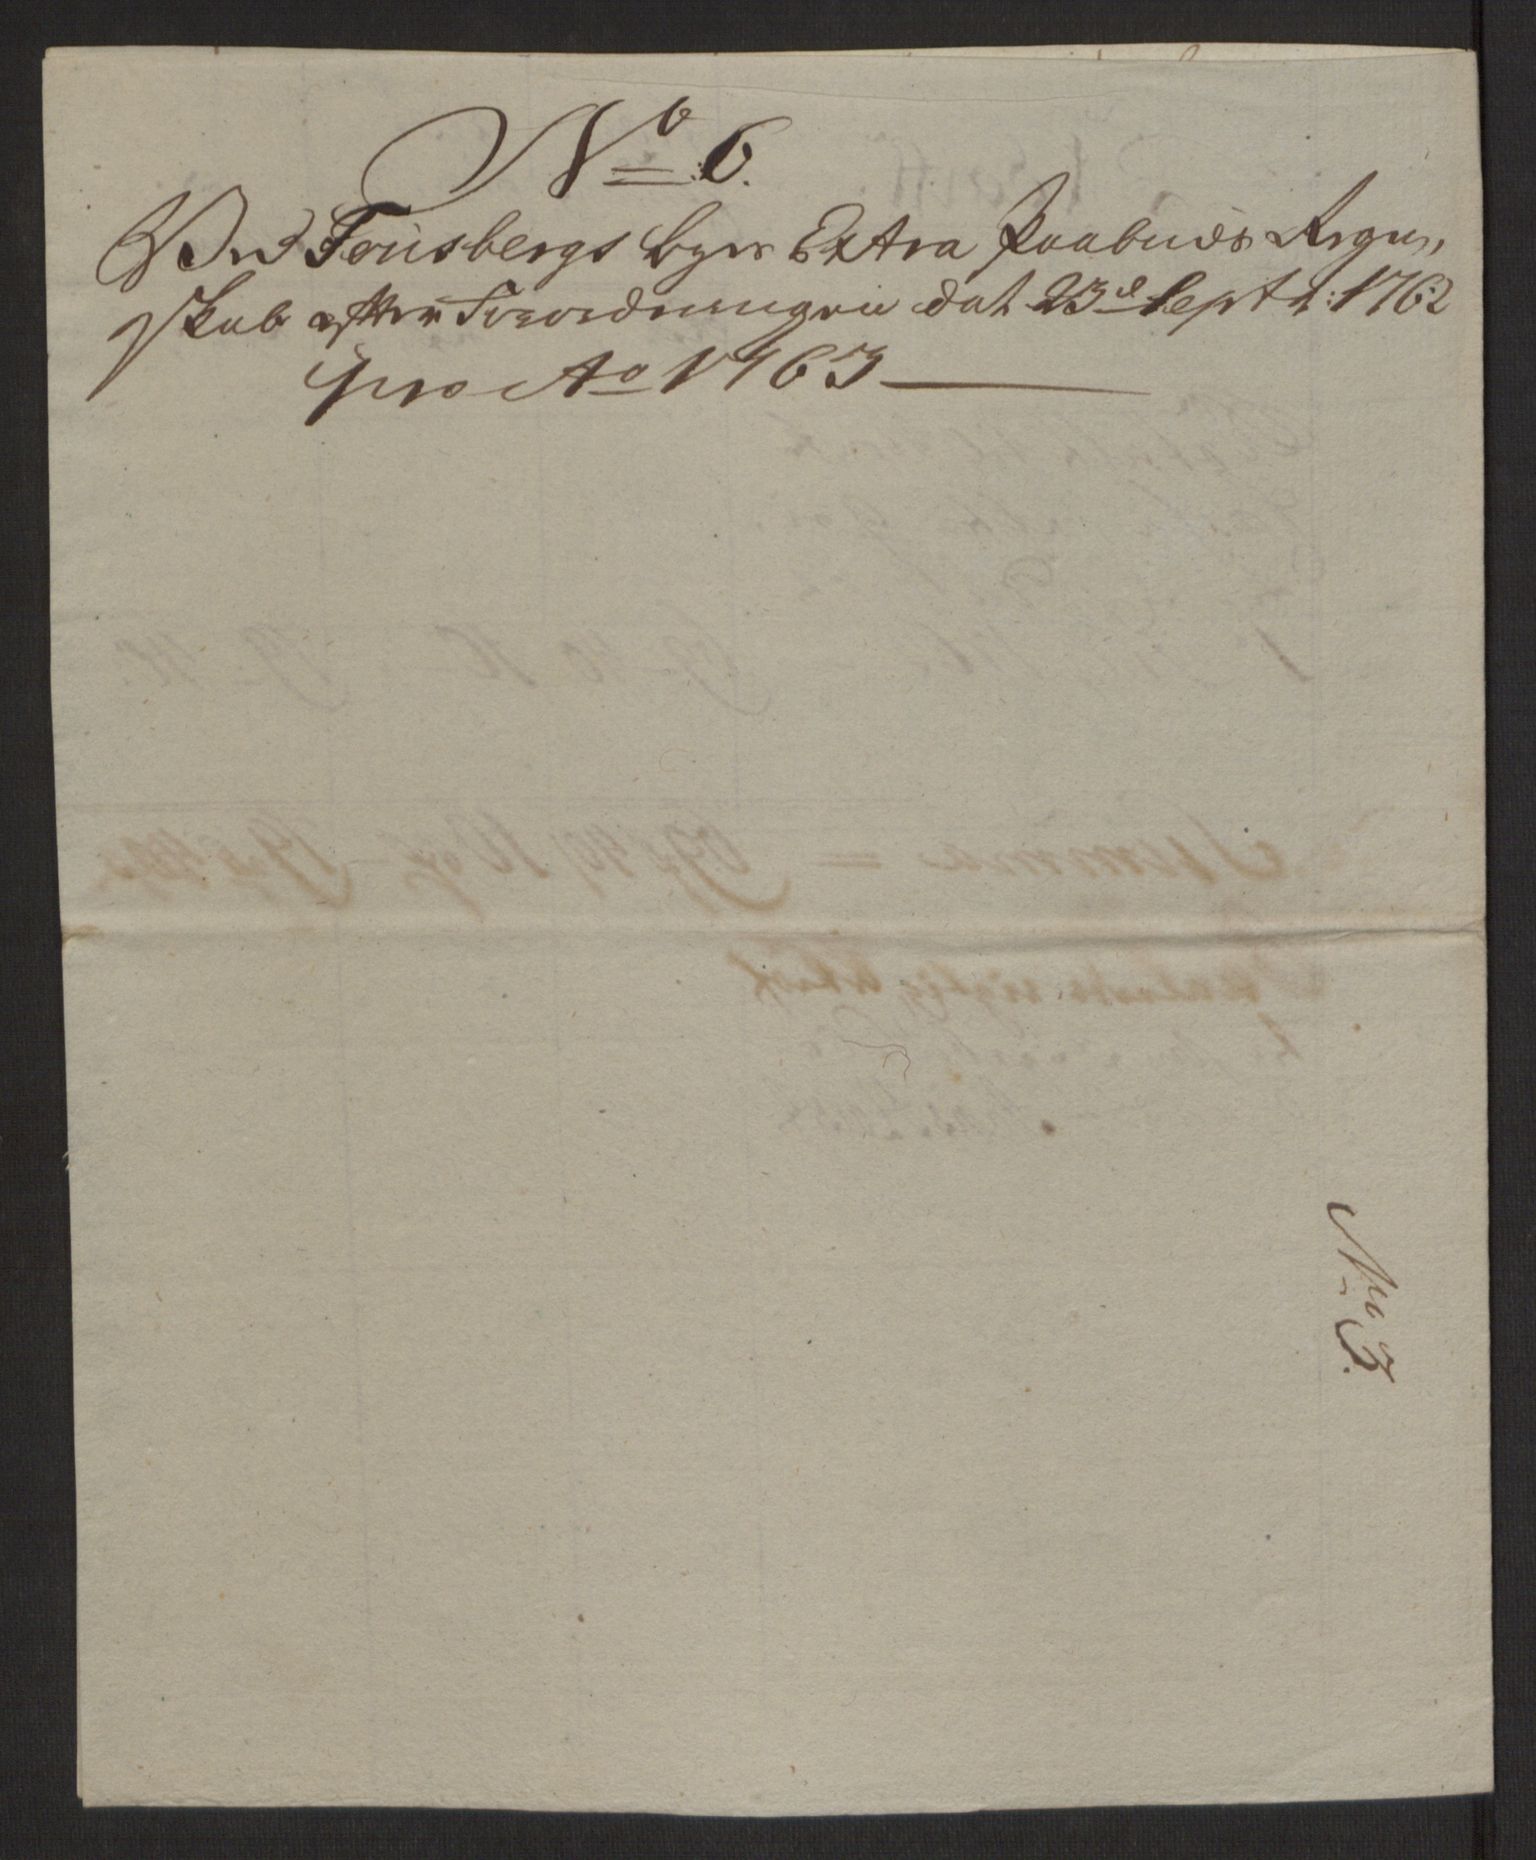 No 6.
Ved Tønsbergs byes Extra Paabuds Regn,
skab efter Forordningen dat 23de Septbr: 1762
pro Ao 1763
No 3.